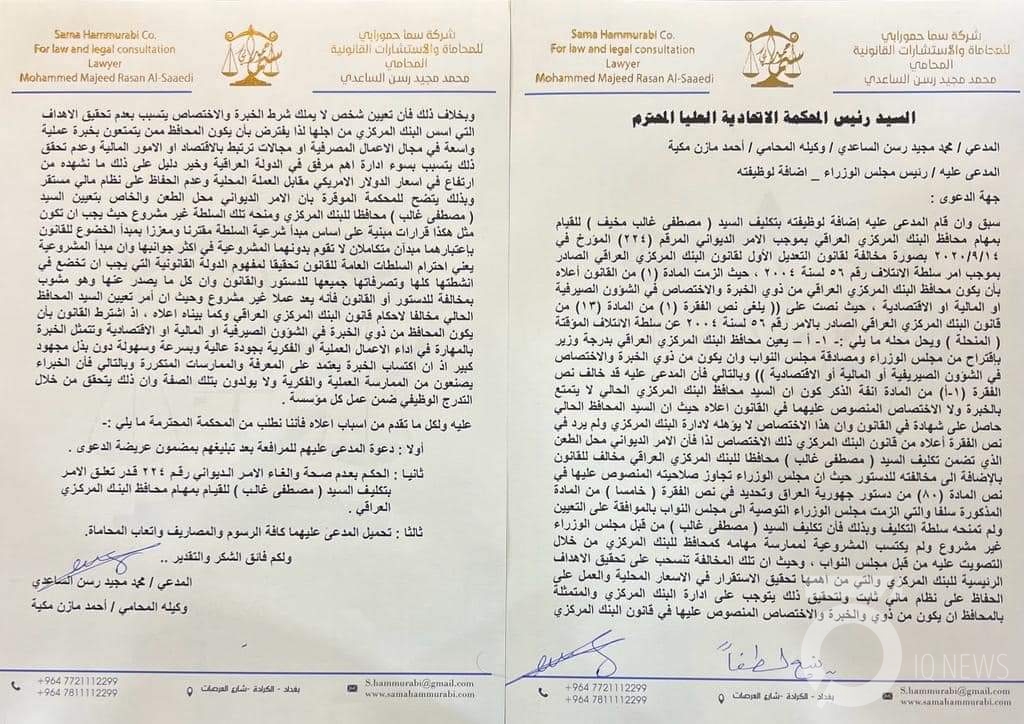 Sama Hammurabi Co.
For law and legal consultation
Lawyer
Mohammed Majeed Rasan Al-Saaedi
شركة سما حمورابي
للمحاماة والاستشارات القانونية
المحامي
محمد مجيد رسن الساعدي
السيد رئيس المحكمة الاتحادية العليا المحترم
المدعي / محمد مجيد رسن الساعدي / وكيله المحامي / أحمد مازن مكية
المدعى عليه / رئيس مجلس الوزراء _ اضافة لوظيفته
جهة الدعوى :
سبق وان قام المدعى عليه إضافة لوظيفته بتكليف السيد ( مصطفى غالب مخيف ) للقيام
بمهام محافظ البنك المركزي العراقي بموجب الامر الديواني المرقم (٢٢٤) المؤرخ في
٢٠٢٠/٩/١٤ بصورة مخالفة لقانون التعديل الأول لقانون البنك المركزي العراقي الصادر
بموجب امر سلطة الائتلاف رقم ٥٦ لسنة ٢٠٠٤ ، حيث الزمت المادة (١) من القانون أعلاه
بأن يكون محافظ البنك المركزي العراقي من ذوي الخبرة والاختصاص في الشؤون الصيرفية
او المالية او الاقتصادية ، حيث نصت على (( يلغى نص الفقرة (١) من المادة (١٣) من
قانون البنك المركزي العراقي الصادر بالامر رقم ٥٦ لسنة ٢٠٠٤ عن سلطة الائتلاف المؤقتة
( المنحلة ) ويحل محله ما يلي :- ١- أ – يعين محافظ البنك المركزي العراقي بدرجة وزير
بإقتراح من مجلس الوزراء ومصادقة مجلس النواب وان يكون من ذوي الخبرة والاختصاص
في الشؤون الصيريفية أو المالية أو الاقتصادية )) وبالتالي فأن المدعى عليه قد خالف نص
الفقرة (١-أ) من المادة انفة الذكر كون ان السيد محافظ البنك المركزي الحالي لا يتمتع
بالخبرة ولا الاختصاص المنصوص عليهما في القانون اعلاه حيث ان السيد المحافظ الحالي
حاصل على شهادة في القانون وان هذا الاختصاص لا يؤهله لادارة البنك المركزي ولم يرد في
نص الفقرة أعلاه من قانون البنك المركزي ذلك الاختصاص لذا فأن الامر الديواني محل الطعن
الذي تضمن تكليف السيد ( مصطفى غالب ) محافظا للبنك المركزي العراقي مخالف للقانون
بالإضافة الى مخالفته للدستور حيث ان مجلس الوزراء تجاوز صلاحيته المنصوص عليها في
نص المادة (٨٠) من دستور جمهورية العراق وتحديد في نص الفقرة ( خامسا ) من المادة
المذكورة سلفا والتي الزمت مجلس الوزراء التوصية الى مجلس النواب بالموافقة على التعيين
ولم تمنحه سلطة التكليف وبذلك فأن تكليف السيد ( مصطفى غالب ) من قبل مجلس الوزراء
غير مشروع ولم يكتسب المشروعية لممارسة مهامه كمحافظ للبنك المركزي من خلال
التصويت عليه من قبل مجلس النواب ، وحيث ان تلك المخالفة تنسحب على تحقيق الاهداف
الرئيسية للبنك المركزي والتي من اهمها تحقيق الاستقرار في الاسعار المحلية والعمل على
الحفاظ على نظام مالي ثابت ولتحقيق ذلك يتوجب على ادارة البنك المركزي والمتمثلة
بالمحافظ ان يكون من ذوي والخبرة والاختصاص المنصوص عليها في قانون البنك المركزي
+964 7721112299
+964 7811112299
بغداد - الكرادة - شارع العرصات
S.hammurabi@gmail.com
www.samahammurabi.com
IQ NEWS
Sama Hammurabi Co.
For law and legal consultation
Lawyer
Mohammed Majeed Rasan Al-Saaedi
شركة سما حمورابي
للمحاماة والاستشارات القانونية
المحامي
محمد مجيد رسن الساعدي
وبخلاف ذلك فأن تعيين شخص لا يملك شرط الخبرة والاختصاص يتسبب بعدم تحقيق الاهداف
التي اسس البنك المركزي من اجلها لذا يفترض بأن يكون المحافظ ممن يتمتعون بخبرة عملية
واسعة في مجال الاعمال المصرفية او مجالات ترتبط بالاقتصاد او الامور المالية وعدم تحقق
ذلك يتسبب بسوء ادارة اهم مرفق في الدولة العراقية وخير دليل على ذلك ما نشهده من
ارتفاع في اسعار الدولار الامريكي مقابل العملة المحلية وعدم الحفاظ على نظام مالي مستقر
وبذلك يتضح للمحكمة الموقرة بان الامر الديواني محل الطعن والخاص بتعيين السيد
( مصطفى غالب ) محافظا للبنك المركزي ومنحه تلك السلطة غير مشروع حيث يجب ان تكون
مثل هكذا قرارات مبنية على اساس مبدأ شرعية السلطة مقترنا ومعززا بمبدأ الخضوع للقانون
بإعتبارهما مبدأن متكاملان لا تقوم بدونهما المشروعية في اكثر جوانبها وان مبدأ المشروعية
يعني احترام السلطات العامة للقانون تحقيقا لمفهوم الدولة القانونية التي يجب ان تخضع في
انشطتها كلها وتصرفاتها جميعها للدستور والقانون وان كل ما يصدر عنها وهو مشوب
بمخالفة للدستور أو القانون فأنه يعد عملا غير مشروع وحيث ان أمر تعيين السيد المحافظ
الحالي مخالفا لاحكام قانون البنك المركزي العراقي وكما بيناه اعلاه ، اذ اشترط القانون بأن
يكون المحافظ من ذوي الخبرة في الشؤون الصيرفية او المالية او الاقتصادية وتتمثل الخبرة
بالمهارة في اداء الاعمال العملية او الفكرية بجودة عالية وبسرعة وسهولة دون بذل مجهود
كبير اذ ان اكتساب الخبرة يعتمد على المعرفة والممارسات المتكررة وبالتالي فأن الخبراء
يصنعون من الممارسة العملية والفكرية ولا يولدون بتلك الصفة وان ذلك يتحقق من خلال
التدرج الوظيفي ضمن عمل كل مؤسسة .
عليه ولكل ما تقدم من اسباب اعلاه فأننا نطلب من المحكمة المحترمة ما يلي :-
أولا : دعوة المدعى عليهم للمرافعة بعد تبليغهم بمضمون عريضة الدعوى .
ثانيا : الحكم بعدم صحة والغاء الامر الديواني رقم ٢٢٤ قدر تعلق الامر
بتكليف السيد ( مصطفى غالب ) للقيام بمهام محافظ البنك المركزي
العراقي .
ثالثا : تحميل المدعى عليهما كافة الرسوم والمصاريف واتعاب المحاماة.
ولكم فائق الشكر والتقدير ..
المدعي / محمد مجيد رسن الساعدي
وكيله المحامي / أحمد مازن مكية
+964 7721112299
+964 7811112299
بغداد - الكرادة - شارع العرصات
S.hammurabi@gmail.com
www.samahammurabi.com